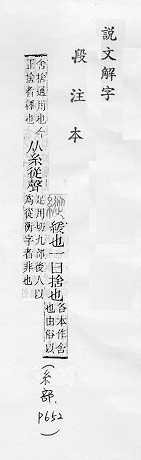 說文解字
段注本
縱緩也一曰捨也
各本作舍
也由俗以
舍捨通用也今
正捨者釋也
从糸從聲
足用切九部後人以
為從衡字者非也
(糸部, P652)